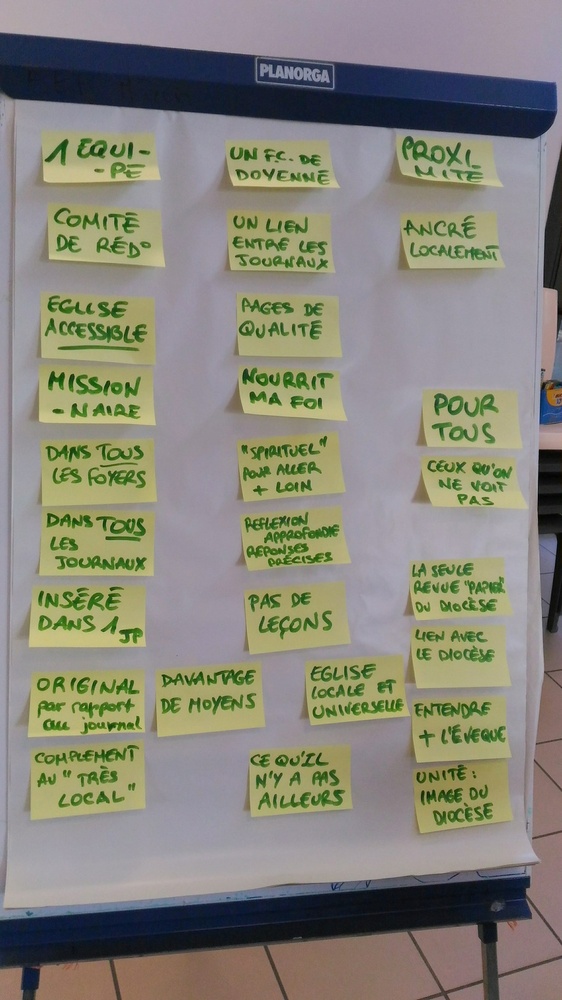 PLANORGA
1 EQUI-
-PE
COMITÉ
DE RÉD°
EGLISE
ACCESSIBLE
MISSION
-NAIRE
DANS TOUS
LES FOYERS
DANS TOUS
LES
JOURNAUX
INSÉRÉ
DANS 1 JP
ORIGINAL
par rapport
au journal
COMPLEMENT
AU "TRÈS
LOCAL"
UN F.C. DE
DOYENNÉ
UN LIEN
ENTRE LES
JOURNAUX
PAGES DE
QUALITÉ
NOURRIT
MA FOI
"SPIRITUEL"
POUR ALLER
+ LOIN
REFLEXION
APPROFONDIE
REPONSES
PRÉCISES
PAS DE
LEÇONS
DAVANTAGE
DE MOYENS
EGLISE
LOCALE ET
UNIVERSELLE
CE QU'IL
N'Y A PAS
AILLEURS
PROXI
MITÉ
ANCRÉ
LOCALEMENT
POUR
TOUS
CEUX QU'ON
NE VOIT
PAS
LA SEULE
REVUE "PAPIER"
DU DIOCÈSE
LIEN AVEC
LE DIOCÈSE
ENTENDRE
+ L'ÉVÊQUE
UNITÉ :
IMAGE DU
DIOCÈSE